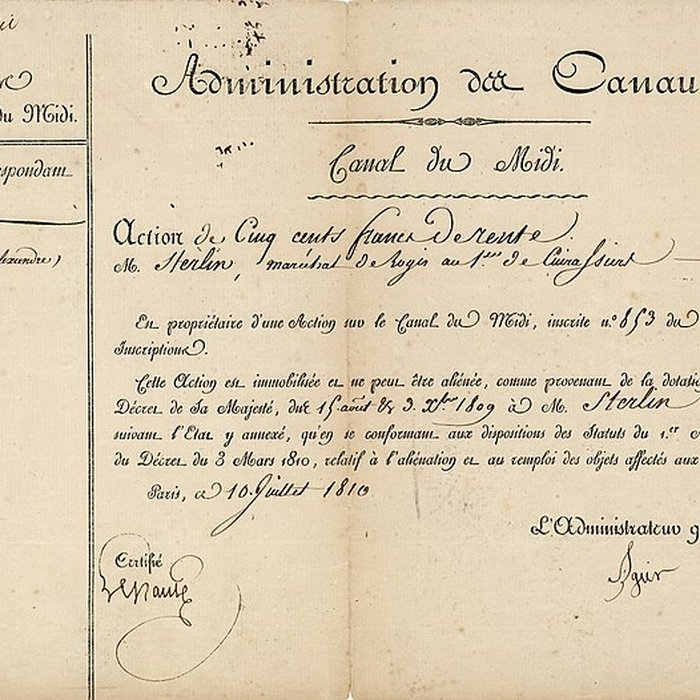 du Midi.
Administration des Canau
Canal du Midi.
Action de Cinq cents francs De rente.
M. Sterlin, maréchal de logis au 1er de Cuirassiers
Est propriétaire d'une Action sur le Canal du Midi, inscrite n.º 853 du
Inscriptions.
Cette Action est immobilisée et ne peut être aliénée, comme provenant de la dotatio
Décret de Sa Majesté, des 15 août & 3. Xbre 1809 à M. Sterlin
suivant l'Etat y annexé, qu'en se conformant aux dispositions des Statuts du 1.er
du Décret du 3 Mars 1810, relatif à l'aliénation et au remploi des objets affectés aux
Paris, ce 10 Juillet 1810
L'Administrateur g
Certifié
Agier